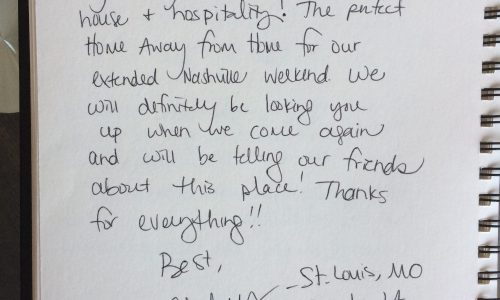 house + hospitality! The perfect
Home Away from Home for our
extended Nashville weekend. We
will definitely be looking you
up when we come again
and will be telling our friends
about this place! Thanks
for everything!!
Best,
- St. Louis, MO